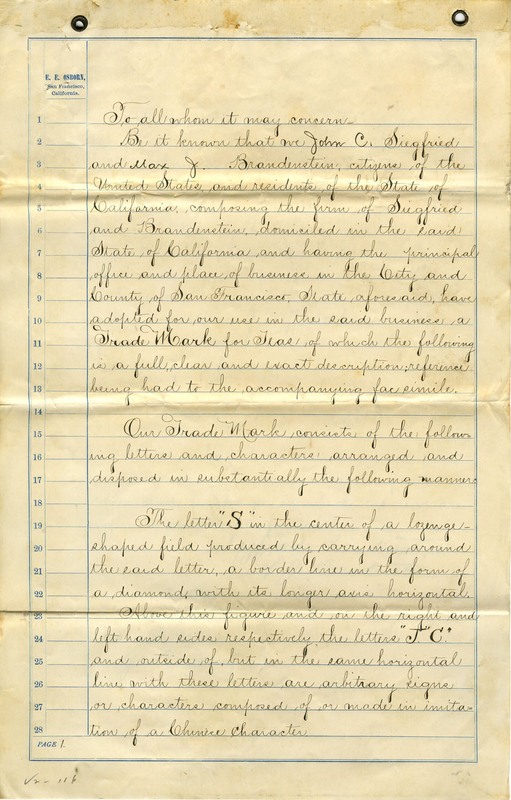 E. E. OSBORN,
San Francisco,
California.
1 To all whom it may concern—
2 Be it known that we John C. Siegfried
3 and Max J. Brandenstein, citizens of the
4 United States, and residents of the State of
5 California, composing the firm of Siegfried
6 and Brandenstein, domiciled in the said
7 State of California and having the principal
8 office and place of business in the City and
9 County of San Francisco, State aforesaid, have
10 adopted for our use in the said business a
11 Trade Mark for Teas, of which the following
12 is a full, clear and exact description; reference
13 being had to the accompanying fac simile.
14
15 Our Trade Mark consists of the follow-
16 ing letters and characters arranged and
17 disposed in substantially the following manner
18
19 The letter "S" in the center of a lozenge-
20 shaped field produced by carrying around
21 the said letter, a border line in the form of
22 a diamond, with its longer axis horizontal.
23 Above this figure and on the right and
24 left hand sides respectively the letters "J" "C."
25 and outside of, but in the same horizontal
26 line with these letters are arbitrary signs
27 or characters composed of or made in imita-
28 tion of a Chinese character
PAGE 1.